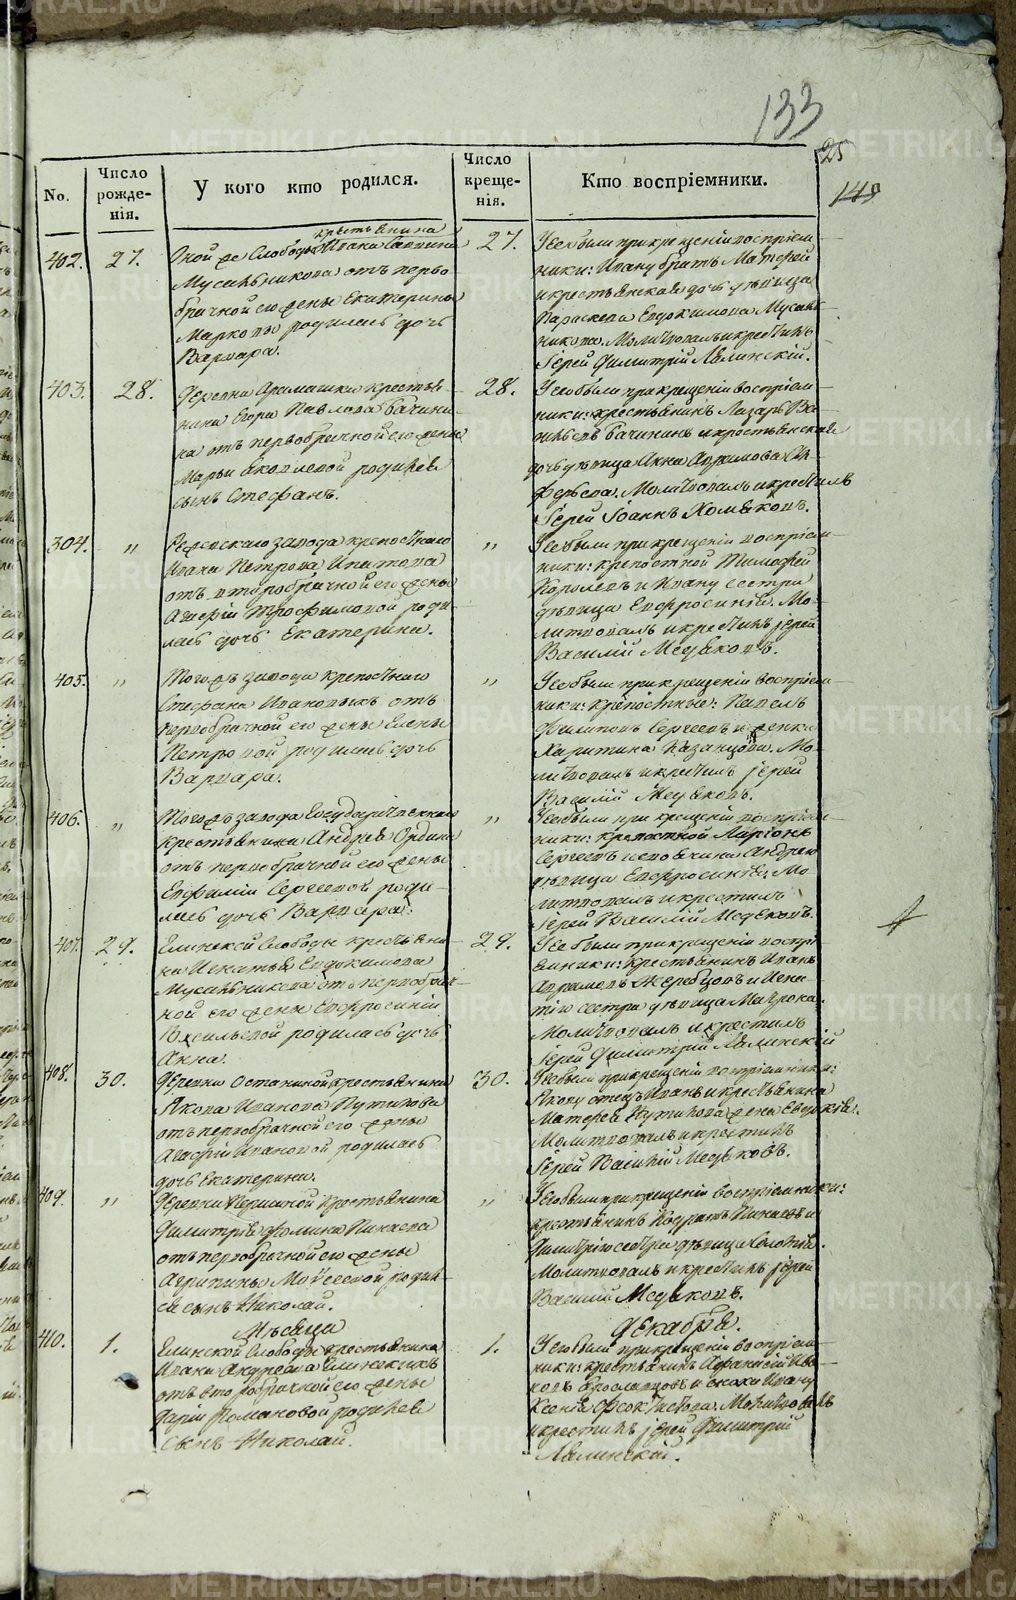 133
25
149
No.
Число рожденія.
У кого кто родился.
Число крещенія.
Кто воспріемники.
402.
27.
крестьянина
Оной же Слободы Ивана Саввина
Мусальникова отъ перво
брачной его жены Екатерины
Марковы родилась дочь
Варвара.
27.
У сей были при крещеніи воспріем
ники: Ивану братъ Матфей
и крестьянская дочь дѣвица
Параскева Евдокимова Мусаль
никова. Молитвовалъ и крестилъ
Іерей Димитрій Лялинскій.
403.
28.
Деревни Арамашки крестья
нина Егора Павлова Бачини
на отъ первобрачной его жены
Марьи Яковлевой родился
сынъ Стефанъ.
28.
У сего были при крещеніи воспріем
ники: крестьянинъ Лазарь Ва
сильевъ Бачининъ и крестьянская
дочь дѣвица Анна Абрамова
Молитвовалъ и крестилъ
Іерей Іоаннъ Хомяковъ.
304.
"
Режевскаго завода крепостнаго
Ивана Петрова Ипатова
отъ второбрачной его жены
Агафіи Трофимовой роди
лась дочь Екатерина.
"
У сей были при крещеніи воспріем
ники: крепостной Тимофей
Королевъ и Ивану сестра
дѣвица Евфросинія. Мо
литвовалъ и крестилъ іерей
Василій Медяковъ.
405.
"
Тогожъ завода крепостнаго
Стефана Ивановыхъ отъ
первобрачной его жены Елены
Петровой родилась дочь
Варвара.
"
У сей были при крещеніи воспріем
ники: крѣпостные: Павелъ
Филиповъ Сергеевъ и женка
Харитина Казанцова. Мо
литвовалъ и крестилъ іерей
Василій Медяковъ.
406.
"
Тогожъ завода Государственнаго
крестьянина Андрея Ордина
отъ первобрачной его жены
Евфиміи Сергеевой роди
лась дочь Варвара.
"
У сей были при крещеніи воспріем
ники: крепостной Ларіонъ
Сергеевъ и Андрею
дѣвица Евфросинія. Мо
литвовалъ и крестилъ
Іерей Василій Медяковъ.
407.
29.
Елинской Слободы крестьяни
на Игнатья Евдокимова
Мусальникова отъ первобрач
ной его жены Евфросиніи
Васильевой родилась дочь
Анна.
29.
У сей были при крещеніи воспрі
емники: крестьянинъ Иванъ
Абрамовъ Жеребцовъ и Игна
тію сестра дѣвица Матрона.
Молитвовалъ и крестилъ
Іерей Димитрій Лялинскій
408.
30.
Деревни Останиной крестьянина
Якова Иванова Путилова
отъ первобрачной его жены
Агафіи Ивановой родилась
дочь Екатерина.
30.
У сей были при крещеніи воспріемники:
Якову отецъ Иванъ и крестьянина
Матфея Путилова жена Евдокія.
Молитвовалъ и крестилъ
Іерей Василій Медяковъ.
409.
"
Деревни Першиной крестьянина
Димитрія Фомина Пинаева
отъ первобрачной его жены
Агрипины Мойсеевой родил
ся сынъ Николай.
"
У сего были при крещеніи воспріемники:
крестьянинъ Кодратъ Пинаевъ и
Димитрію сестра дѣвица
Молитвовалъ и крестилъ іерей
Василій Медяковъ.
Мѣсяца
Декабря.
410.
1.
Елинской Слободы крестьянина
Ивана Андреева Елинскихъ
отъ второбрачной его жены
Даріи Романовой родился
сынъ Николай.
1.
У сего были при крещеніи воспріем
ники: крестьянинъ Афанасій Ива
новъ Ярославцовъ и сноха Ивану
Ксенія Феоктистова. Молитвовалъ
и крестилъ іерей Димитрій
Лялинскій.
METRIKI.GASO-URAL.RU